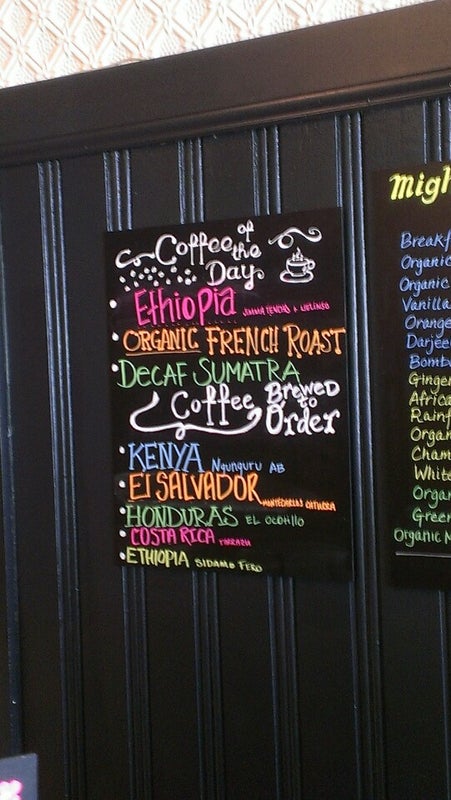 Coffee of the Day
Ethiopia
ORGANIC FRENCH ROAST
DECAF SUMATRA
Coffee Brewed to Order
KENYA Ngunguru AB
El SALVADOR
HONDURAS EL OCOTILLO
COSTA RICA TARRAZU
ETHIOPIA SIDAMO FERO
Migh
Breakf
Organic
Organic
Vanilla
Orange
Darjee
Bomb
Ginger
Africa
Rainf
Organ
Cham
White
Organ
Green
Organic M